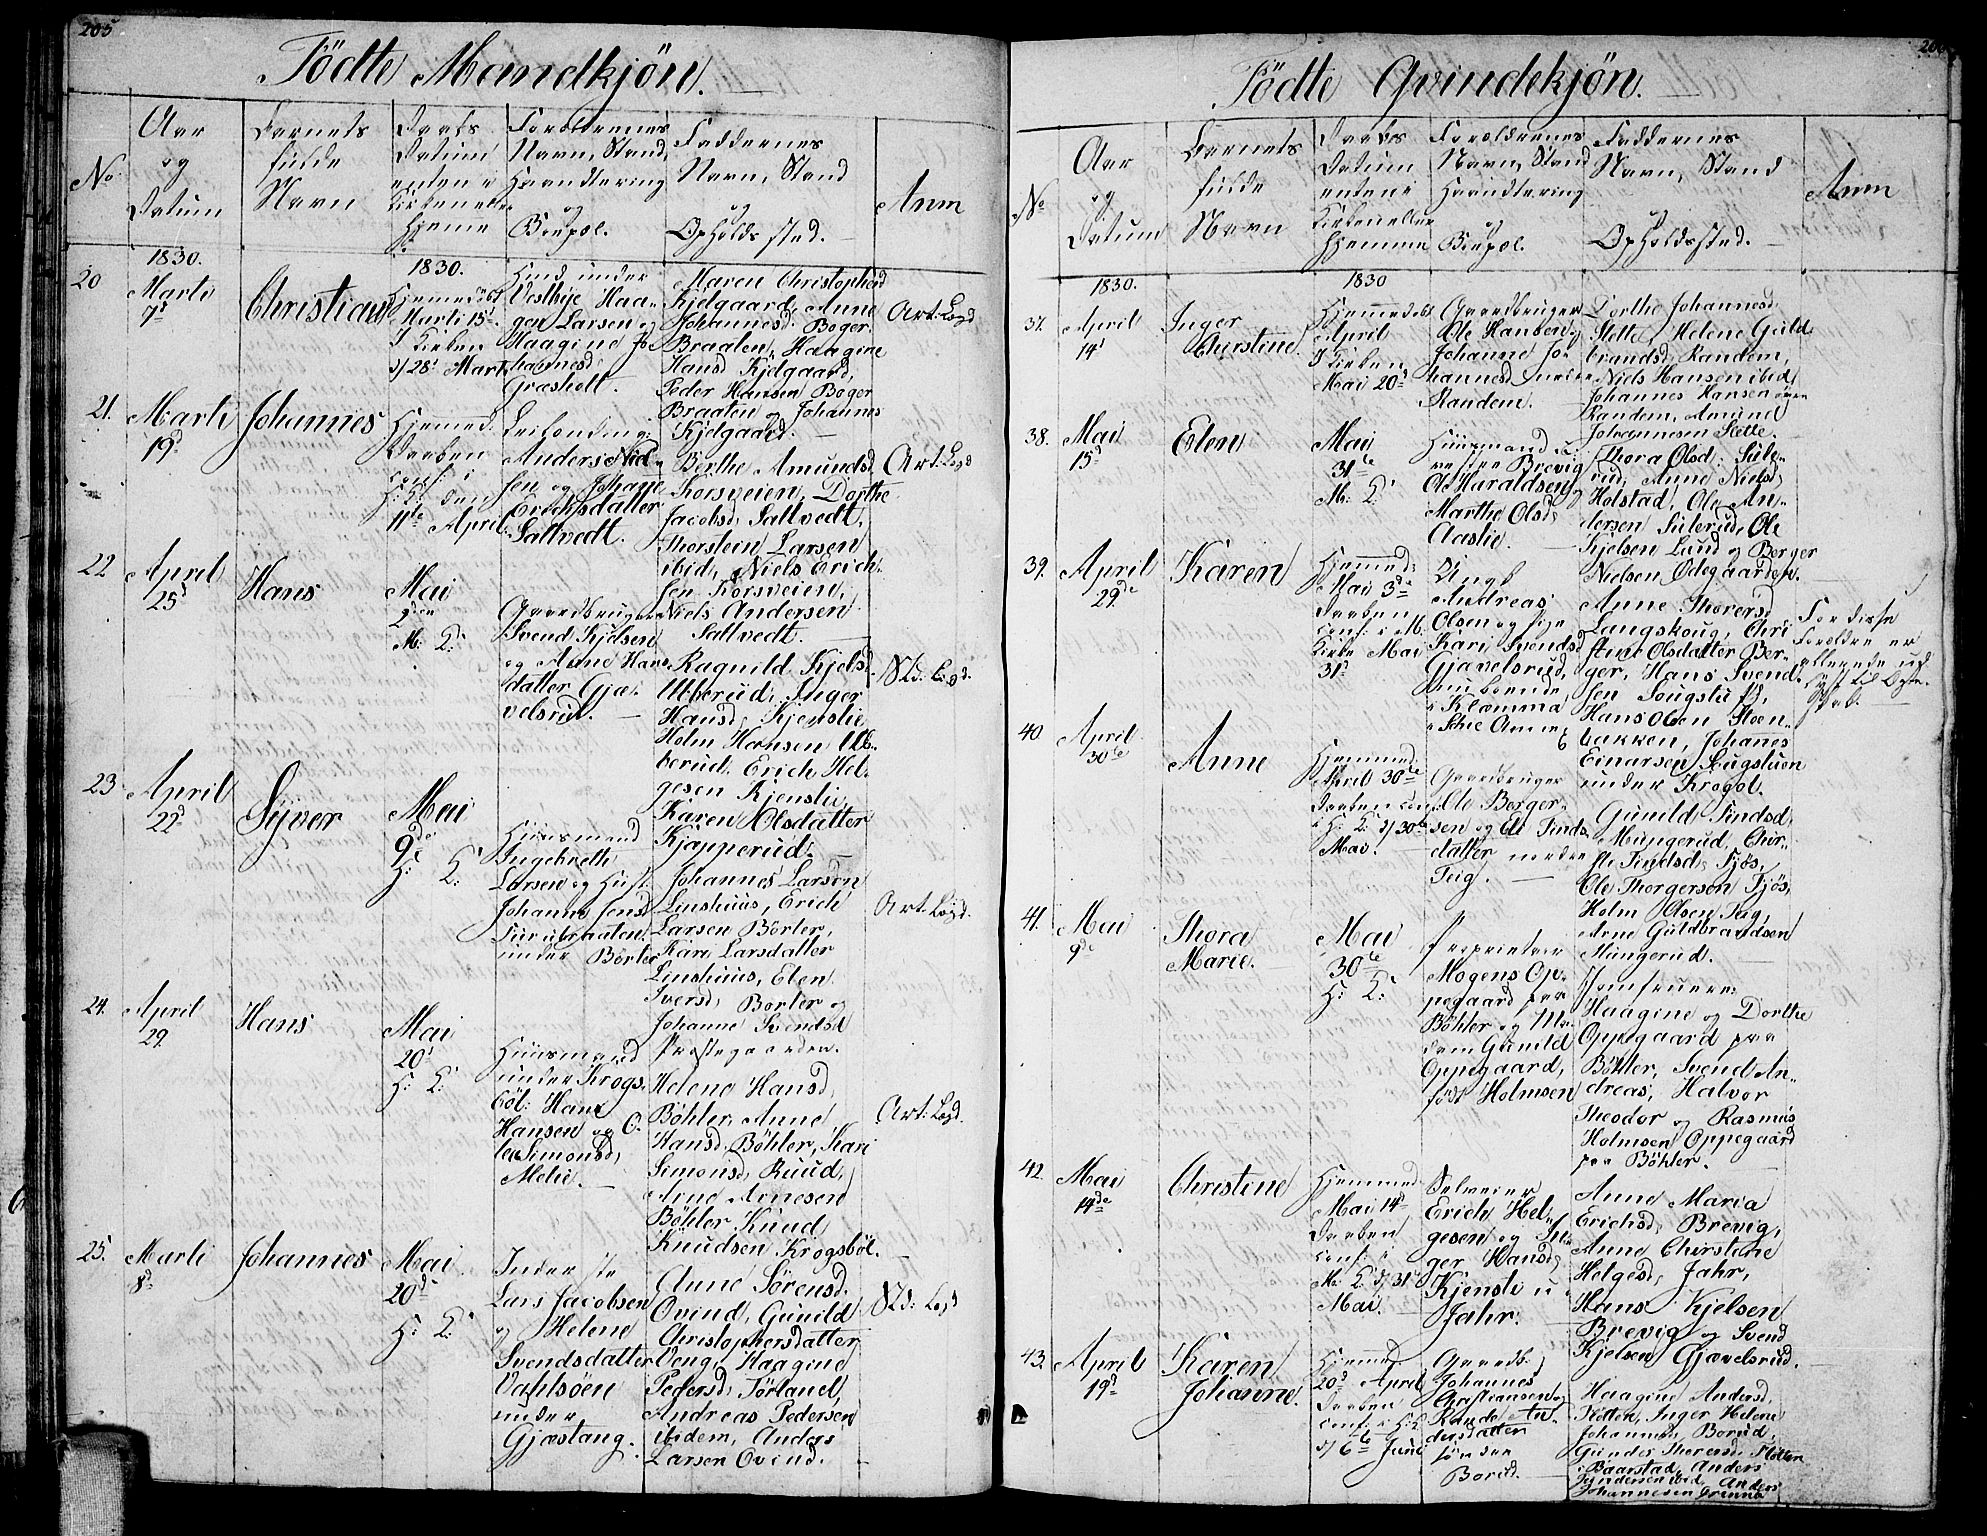 205
Födte Mandkjön.
No
Aar
og
Datum
Barnets
fulde
Navn
Daabs
Datum
enten i
Kirken eller
Hjemme
Forældrenes
Navn, Stand,
Haandtering
og
Bopæl.
Faddernes
Navn, Stand
og
Opholdssted.
Anm
1830.
1830.
20
Marti
7d
Christian
Hjemmedöbt
Marti 15d
I Kirken
d/28d Mart
Huusmd under
Vestbye Haa-
gen Larsen og
Haagine Jo-
hannesd
Græsholt.
Maren Christophersd
Kjelgaard, Anne
Johannesd, Boger
Braaten, Haagine
Hansd Kjelgaard,
Peder Hansen Boger
Braaten og Johannes
Kjelgaard.
Art: Legd
21.
Marti
19d
Johannes
Hjemmed.
Daaben
conf: i
H: K: den
11te April.
Leilænding
Anders Niel-
sen og Johanne
Erichsdatter
Saltvedt.
Berthe Amundsd
Korsveien, Dorthe
Jacobsd, Saltvedt,
Thorstein Larsen
ibid, Niels Erich-
sen Korsveien,
Niels Andersen
Saltvedt.
Art: Legd
22
April
25d
Hans
Mai
2den
M: K:
Gaardbruger
Svend Kjelsen
og Anne Hans
datter Gjæ-
velsrud.
Ragnild Kjelsd
Ubberud, Inger
Hansd, Kjenslie
Holm Hansen Ub-
berud, Erich Hel-
gesen Kjenslie,
Karen Olsdatter
Kjapperud.
Nd: Legd.
23
April
22d
Syver
Mai
9de
H: K:
Huusmand
Ingebreth
Larsen og Hust:
Johanne Jensd
Furubraaten
under Börter
Johannes Larsen
Linshuus, Erich
Larsen Börter,
Kari Larsdatter
Linshuus, Elen
Iversd, Borter og
Johanne Svendsd
Præstegaarden.
Art: Legd.
24.
April
29.
Hans
Mai
20d
H: K:
Huusmand
under Krogs-
böl: Hans
Hansen og O-
lea Simonsd,
Melie.
Helene Hansd,
Böhler, Anne
Hansd, Böhler, Kari
Simonsd, Ruud,
Arne Arnesen
Böhler Knud
Knudsen Krogsböl.
Art: Legd.
25.
Marti
8d
Johannes
Mai
20d
H: K:
Inderste
Lars Jacobsen
og Helene
Svendsdatter
Vahlsöen
under
Gjæstang.
Anne Sörensd.
Ovind, Gunild
Christophersdatter
Veng, Haagine
Pedersd, Torland,
Andreas Pedersen
ibidem, Anders
Larsen Ovind.
Nd: Legd
206
Födte Qvindekjön.
No
Aar
og
Datum
Barnets
fulde
Navn
Daabs
Datum
enten i
Kirken eller
Hjemme
Forældrenes
Navn, Stand
Haandtering
og
Bopæl.
Faddernes
Navn, Stand
og
Opholdssted.
Anm
1830.
1830
37.
April
14d
Inger
Chirstine.
Hjemmedöbt
April
I Kirken
Mai 20d
Gaardbruger
Ole Hansen og
Johanne Jo-
hannesd nedre
Randem.
Dorthe Johannesd
Slette, Helene Guld
brandsd, Randem,
Niels Hansen ibid,
Johannes Hansen övre
Randem, Amund
Johannesen Slette.
38.
Mai
15d
Elen
Mai
31te
M: K:
Huusmand u:
vestre Brevig
Ole Haraldsen og
Marthe Olsd,
Aaslie.
Thora Olsd, Sule-
rud, Anne Nielsd,
Holstad, Ole An-
dersen Sulerud, Ole
Kjelsen Lund og Berger
Nielsen Ödegaarden.
39.
April
29de
Karen
Hjemmed:
Mai 3de
Daaben
conf: i M.
Kirke Mai
31d
Ungk
Andreas
Olsen og Pige
Kari Svendsd
Gjævelsrud,
nu boende
i Klemma
Anne Thorersd
Langskoug, Chri-
stine Olsdatter Ber-
ger, Hans Svend-
sen Sougstu,
Hans Olsen Steen-
bakken, Johanes
Einarsen Sougstuen
under Krogol.
For disse
Forældre er
allerede ud
lyst til Ægte-
skab.
40
April
30te
Anne
Hjemmed:
April 30te
Daaben con:
i H: K: d/30te
Mai.
Gaardbruger
Ole Berger-
sen og Eli Finds-
datter nordre
Teig.
Gunild Findsd,
Mungerud, Chir-
sti Findsd, Tjös,
Ole Thorgersen Tjös,
Holm Olsen Teig,
Arne Guldbrandsen
Mungerud.
41.
Mai
9de
Thora
Marie.
Mai
30te
H: K:
Proprietær
Mogens Op-
pegaard paa
Böhler og Ma-
dam Gunild
Oppegaard,
född Holmsen
Jomfruerne:
Haagine og Dorthe
Oppegaard paa
Böhler, Svend An-
dreas, Halvor
Theodor og Rasmus
Holmsen Oppegaard
paa Böhler.
42.
Mai
14de
Christine
Hjemmed
Mai 14d
Daaben
conf: i
M: K: d/31te
Mai.
Selveier
Erich Hel-
gesen og In-
ger Hansd,
Kjensli u:
Jahr.
Anne Maria
Erichsd, Brevig,
Anne Chirstine
Helgesd, Jahr,
Hans Kjelsen
Brevig og Svend
Kjelsen Gjævelsrud.
43.
April
19d
Karen
Johanne.
Hjemmed
20d April
Daaben
conf: i H: K:
d/6te Juni
Gaardb.
Johannes
Christiansen og
Rande An-
dersdatter
söndre
Borud.
Haagine Andersd,
Flotten, Inger Helene
Johannesd, Borud,
Gunder Thorersd, Flotten
i Baarstad, Anders
Gundersen ibid, Anders
Johannesen